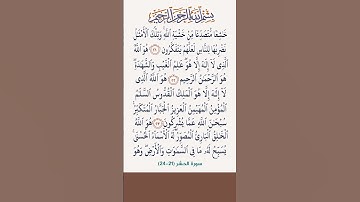 بِسْمِ اللَّهِ الرَّحْمَٰنِ الرَّحِيمِ
خَٰشِعًا مُّتَصَدِّعًا مِّنْ خَشْيَةِ ٱللَّهِ وَتِلْكَ ٱلْأَمْثَٰلُ
نَضْرِبُهَا لِلنَّاسِ لَعَلَّهُمْ يَتَفَكَّرُونَ ٢١ هُوَ ٱللَّهُ
ٱلَّذِى لَآ إِلَٰهَ إِلَّا هُوَ عَٰلِمُ ٱلْغَيْبِ وَٱلشَّهَٰدَةِ
هُوَ ٱلرَّحْمَٰنُ ٱلرَّحِيمُ ٢٢ هُوَ ٱللَّهُ ٱلَّذِى
لَآ إِلَٰهَ إِلَّا هُوَ ٱلْمَلِكُ ٱلْقُدُّوسُ ٱلسَّلَٰمُ
ٱلْمُؤْمِنُ ٱلْمُهَيْمِنُ ٱلْعَزِيزُ ٱلْجَبَّارُ ٱلْمُتَكَبِّرُ
سُبْحَٰنَ ٱللَّهِ عَمَّا يُشْرِكُونَ ٢٣ هُوَ ٱللَّهُ
ٱلْخَٰلِقُ ٱلْبَارِئُ ٱلْمُصَوِّرُ لَهُ ٱلْأَسْمَآءُ ٱلْحُسْنَىٰ
يُسَبِّحُ لَهُۥ مَا فِى ٱلسَّمَٰوَٰتِ وَٱلْأَرْضِ وَهُوَ
سورة الحشر (21-24)